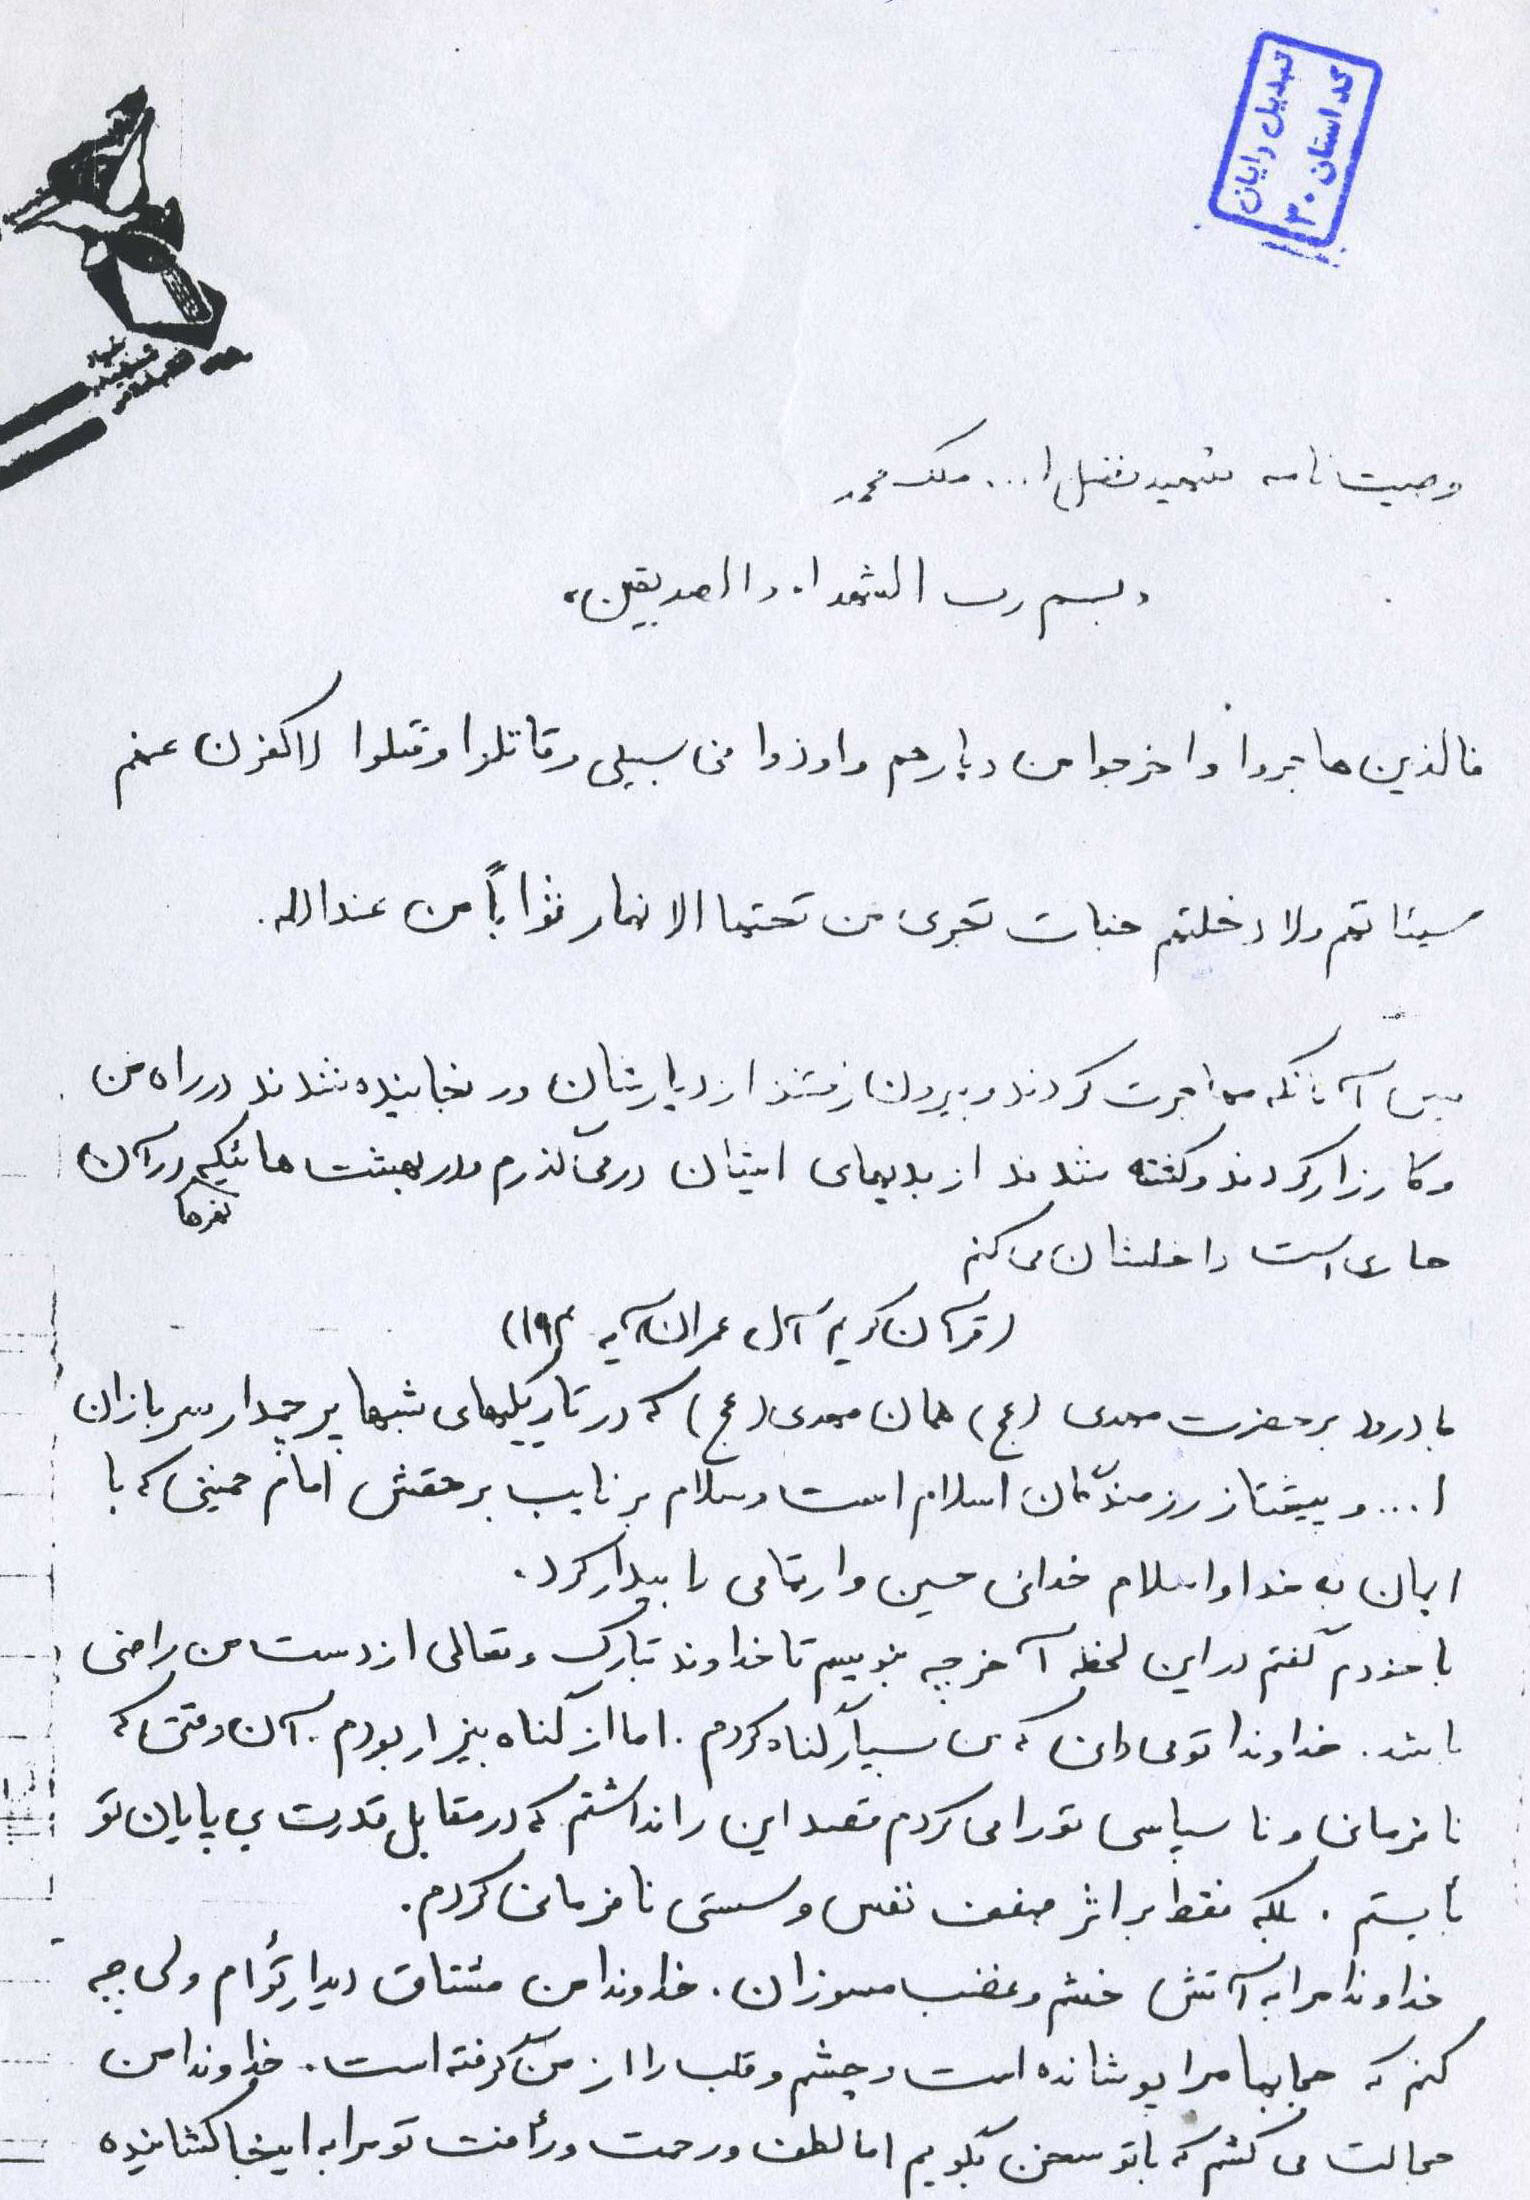 تبدیل رایان
کد استان ۳۰
وصیت نامه شهید فضل ا... ملک محمد
«بسم رب الشهداء والصدیقین»
فالذین هاجروا واخرجوا من دیارهم واوذوا فی سبیلی وقاتلوا وقتلوا لاکفرن عنهم
سیئاتهم ولادخلنهم جنات تجری من تحتها الانهار ثواباً من عندالله.
پس آنانکه مهاجرت کردند و بیرون رفتند از دیارشان و رنجانیده شدند در راه من
و کارزار کردند و کشته شدند از بدیهای ایشان درمی‌گذرم و در بهشت هائیکه در آن
نهرها
جاری است داخلشان می کنم
(قرآن کریم آل عمران آیه ۱۹۴)
با درود بر حضرت مهدی (عج) همان مهدی (عج) که در تاریکیهای شبها پرچمدار سربازان
ا... و پیشتاز رزمندگان اسلام است و سلام بر نایب برحقش امام خمینی که با
ایمان به خدا و اسلام خدائی حسین وار تمامی را بیدار کرد.
با خودم گفتم در این لحظه آخر چه بنویسم تا خداوند تبارک و تعالی از دست من راضی
باشد. خداوندا تو می دانی که من بسیار گناه کردم. اما از گناه بیزار بودم. آن وقتی که
نافرمانی و ناسپاسی تو را می کردم قصد این را نداشتم که در مقابل قدرت بی پایان تو
بأیستم. بلکه فقط بر اثر ضعف نفس و سستی نافرمانی کردم.
خداوندا مرا به آتش خشم و غضب مسوزان. خداوندا من مشتاق دیدار توأم ولی چه
کنم که حجابها مرا پوشانده است و چشم و قلب را از من گرفته است. خداوندا من
خجالت می کشم که با تو سخن بگویم اما لطف و رحمت و رأفت تو مرا به اینجا کشانیده